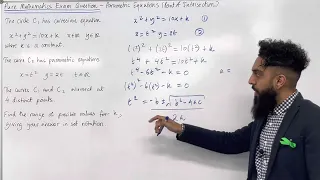 Pure Mathematics Exam Question - Parametric Equations (Point of Intersection)
The circle C₁ has cartesian equation
x² + y² = 10x + k x∈ℝ y∈ℝ
where k is a constant
The curve C₂ has parametric equations
x = t² y = 2t t∈ℝ
The curves C₁ and C₂ intersect at
4 distinct points.
Find the range of possible values for k,
giving your answer in set notation
x² + y² = 10x + k
x = t² y = 2t
(t²)² + (2t)² = 10(t²) + k
t⁴ + 4t² = 10t² + k
t⁴ - 6t² - k = 0
(t²)² - 6(t²) - k = 0
t² = -b ± √b² - 4ac
2a
a =